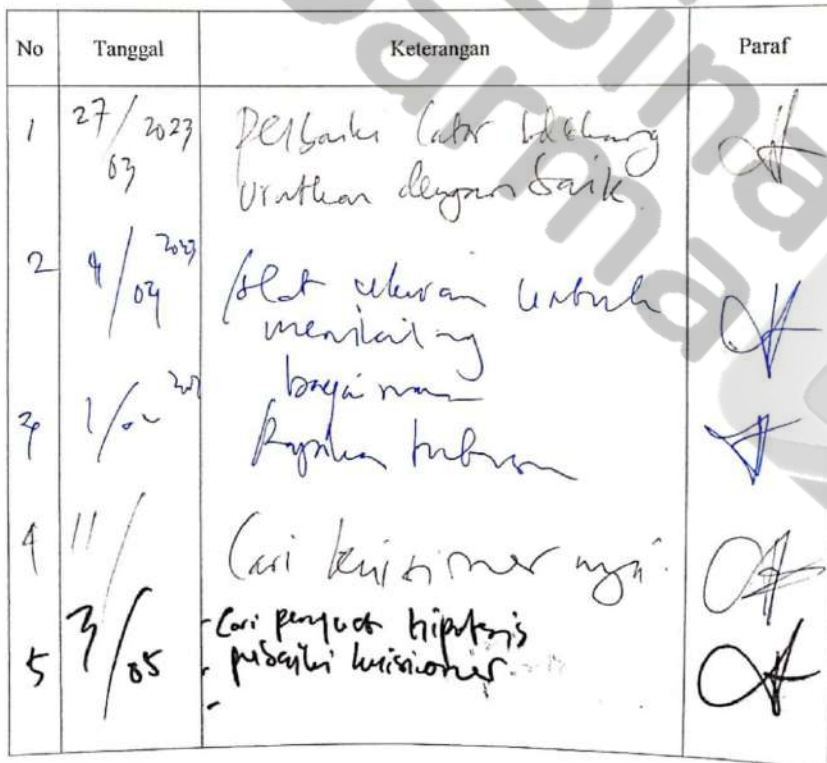 bina
darma
No Tanggal Keterangan Paraf
1 27/03 2023 Perbaiki latar belakang
uratkan dengan baik.
2 4/04 2023 Alat ukuran untuk
menilai
bagaimana
3 Rapikan tulisan
4 11/ Cari kuisioner nya.
5 3/05 - Cari penguat hipotesis
- perbaiki kuisioner
-